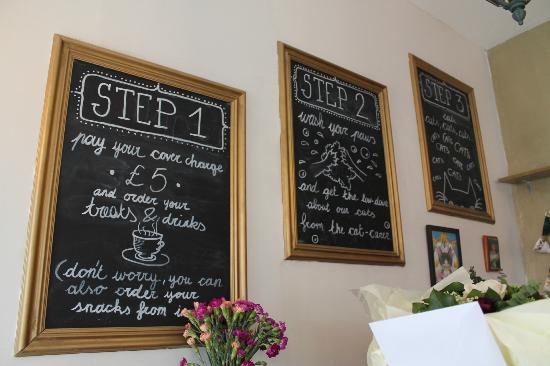 STEP 1
pay your cover charge
. £5 .
and order your
treats & drinks
(don't worry, you can
also order your
snacks from
STEP 2
wash your paws
and get the low-down
about our cats
from the cat-carer
STEP 3
cats
cats, cats, cats